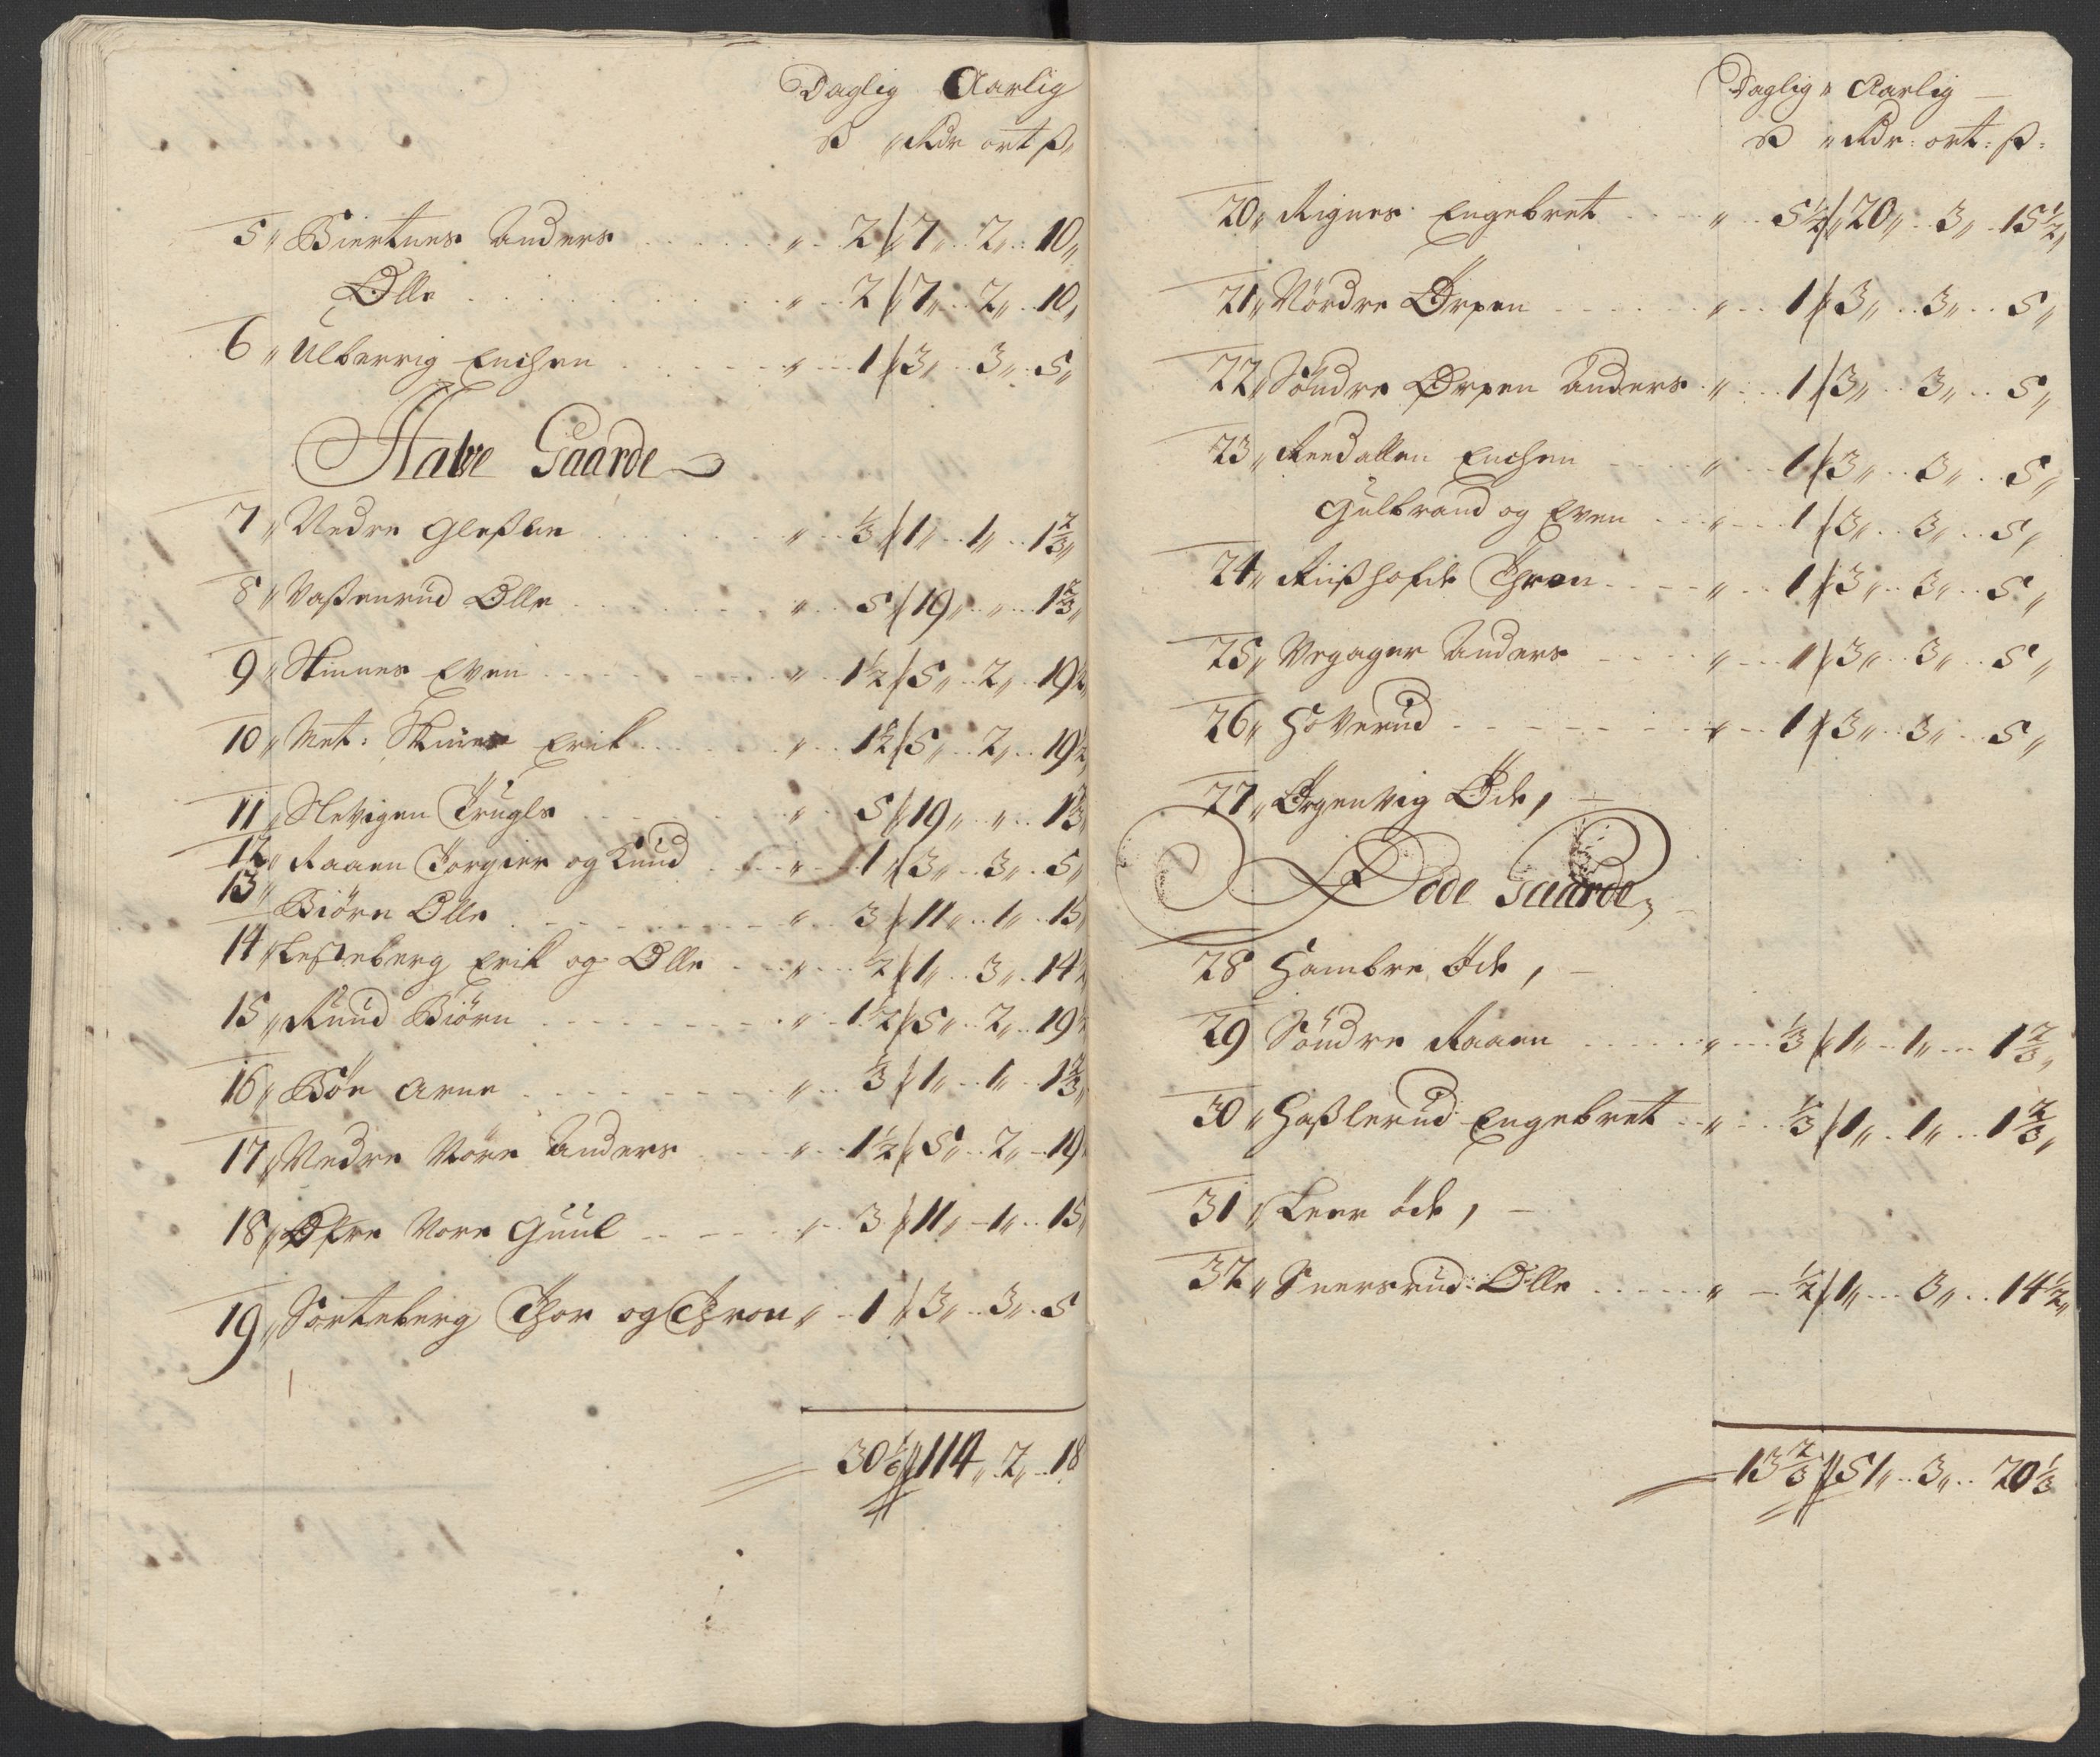 Daglig Aarlig
ß " Rdr ort ß"
5" Biertnes Anders " 2 // 7" 2" 10"
Olle " 2 // 7" 2" 10"
6" Ulberrig Enchen " 1 // 3" 3" 5"
Halve Gaarde
7" Nedre Gleßne " 1/3 // 1" 1" 1 2/3"
8" Vaßenrud Olle " 5 // 19" " 1 2/3"
9" Skinnes Even " 1 1/2 // 5" 2" 19 1/2
10" Met: Skinnes Erik " 1 1/2 // 5" 2" 19 1/2
11" Slevigen Trugls " 5 // 19" " 1 2/3
12" Raaen Torgier og Knud " 1 // 3" 3" 5"
13" Biörn Olle " 3 // 11" 1" 15
14" Lesteberg Erik og Olle " 1/2 // 1" 3" 14 1/2
15" Ruud Biörn " 1 1/2 // 5" 2" 19 1/2
16" Böe Arne " 1/3 // 1" 1" 1 2/3
17" Nedre Vöre Anders " 1 1/2 // 5" 2" 19
18" Øfre Vore Guul " 3 // 11" 1" 15
19" Sorteberg Thor og Thron " 1 // 3" 3" 5
30 1/6 // 114" 2" 18
Daglig " Aarlig
ß " Rdr: ort: ß:
20" Rignes Engebret " 5 1/2 // 20" 3" 15 1/2"
21" Nördre Ørpen " 1 // 3" 3" 5"
22" Söndre Ørpen Anders " 1 // 3" 3" 5"
23" Reedallen Enchen " 1 // 3" 3" 5"
Gulbrand og Even " 1 // 3" 3" 5"
24" Riißhofde Thron " 1 // 3" 3" 5"
25" Vegager Anders " 1 // 3" 3" 5"
26" Hoverud " 1 // 3" 3" 5"
27" Ørgenvig Øde,
Øde Gaarde
28 Hambre Øde,
29 Söndre Raaen " 1/3 // 1" 1" 1 2/3"
30" Haßlerud Engebret " 1/3 // 1" 1" 1 2/3"
31" Leer öde,
32" Snersrud Olle " 1/2 // 1" 3" 14 1/2"
13 2/3 // 51" 3" 20 1/3